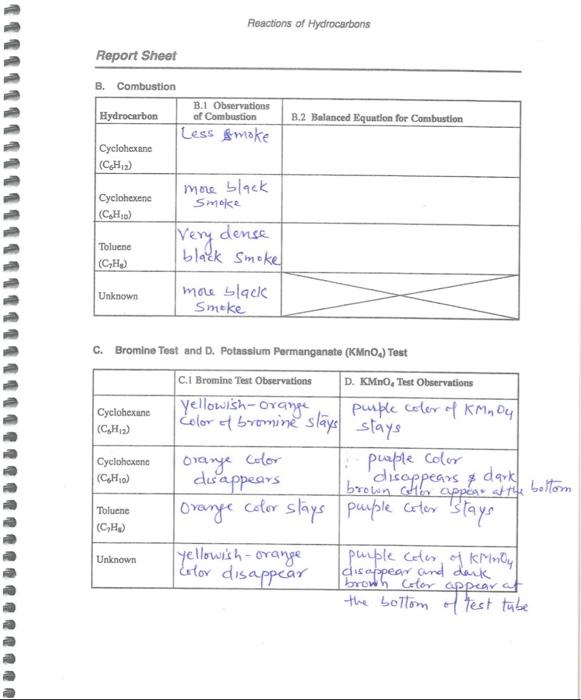 Reactions of Hydrocarbons
Report Sheet
B. Combustion
Hydrocarbon
B.1 Observations
of Combustion
B.2 Balanced Equation for Combustion
Cyclohexane
(C₆H₁₂)
Less smoke
Cyclohexene
(C₆H₁₀)
more black
smoke
Toluene
(C₇H₈)
Very dense
black smoke
Unknown
more black
smoke
C. Bromine Test and D. Potassium Permanganate (KMnO₄) Test
C.1 Bromine Test Observations
D. KMnO₄ Test Observations
Cyclohexane
(C₆H₁₂)
yellowish-orange
color of bromine stays
purple color of KMnO4
stays
Cyclohexene
(C₆H₁₀)
orange color
disappears
purple color
disappears & dark
brown color appear at the bottom
Toluene
(C₇H₈)
orange color stays
purple color stays
Unknown
yellowish-orange
color disappear
purple color of KMnO4
disappear and dark
brown color appear at
the bottom of test tube